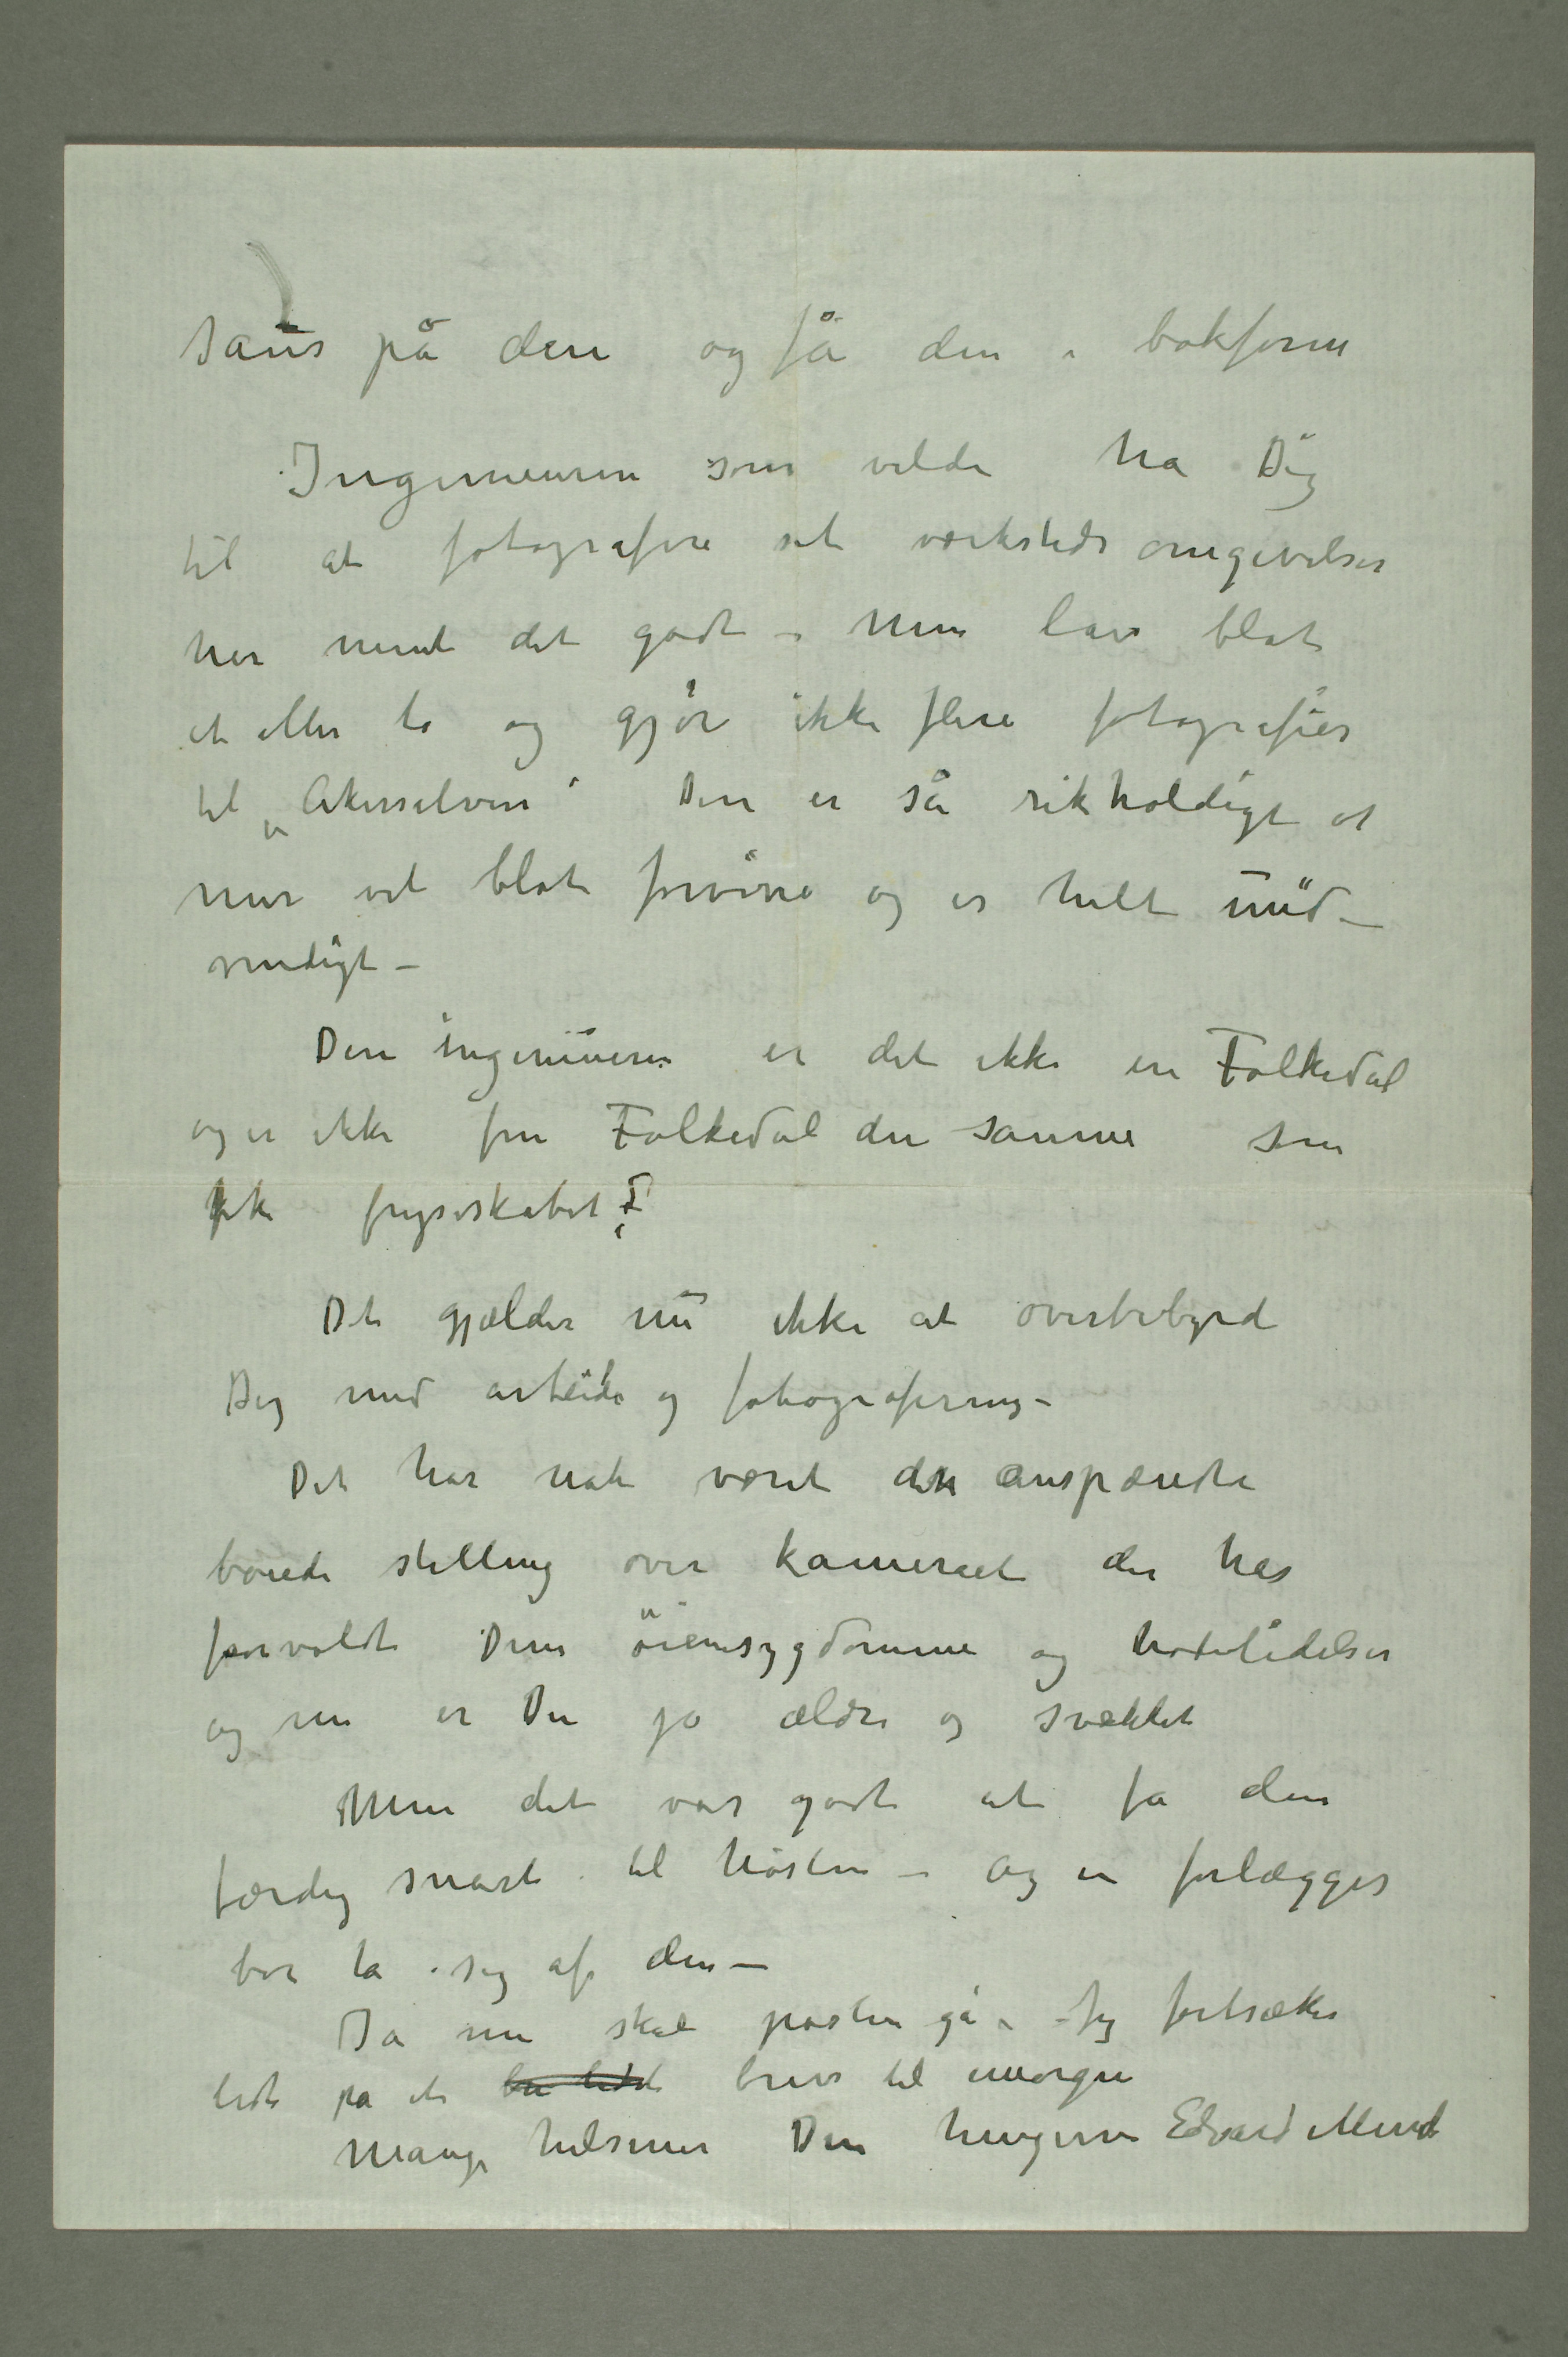 saus på den og få den i bokform
Ingeniøren som vilde ha Dig
til at fotografere sit værksteds omgivelser
har ment det godt – Men lav blot
et eller to og gjør ikke flere fotografier
til „Akerselven“ Den er så rikholdigt at
mer vil blot forvirre og er helt unød–
vendigt –
Den ingeniøren er det ikke en Folkedal
og er ikke fru Folkedal den samme som
fik fryseskabet?
Det gjælder nu ikke at overbebyrde
Dig med arbeide og fotografering –
Det har nok været den anspændte
bøiede stilling over kameraet der har
forvoldt Dine øiensygdomme og hodelidelser
og nu er Du jo ældre og svækket
Men det var godt at få den
færdig snart til høsten – og en forlægger
bør ta sig af den –
Ja nu skal posten gå – Jeg fortsætter
lidt på et brev til imorgen
Mange hilsener Din hengivne Edvard Munch